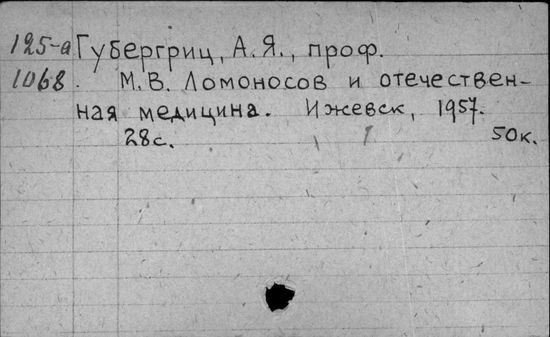 125-а Губергриц, А.Я., проф.
1068. М.В. Ломоносов и отечествен-
ная медицина. Ижевск, 1957.
28с. 50к.